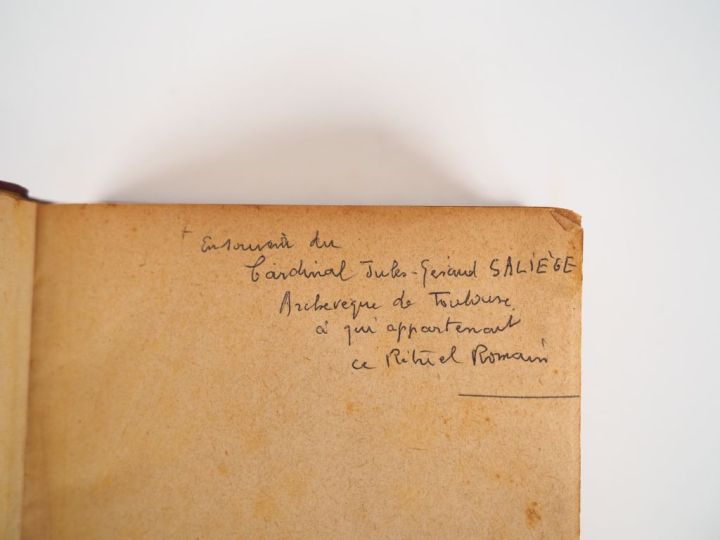 + En souvenir du
Cardinal Jules-Géraud SALIÈGE
Archeveque de Toulouse,
à qui appartenait
ce Rituel Romain